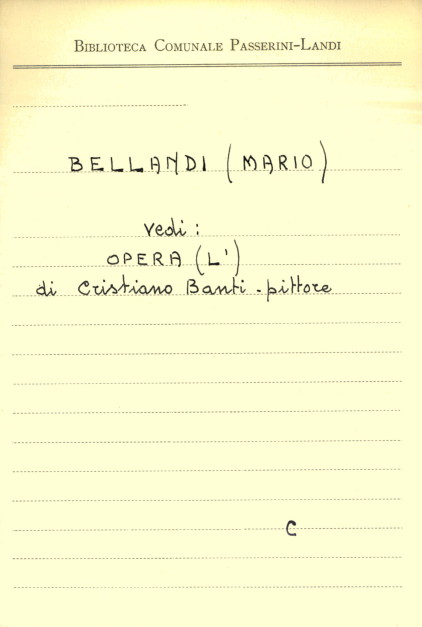 BIBLIOTECA COMUNALE PASSERINI-LANDI
BELLANDI (MARIO)
vedi:
OPERA (L')
di Cristiano Banti - pittore
C